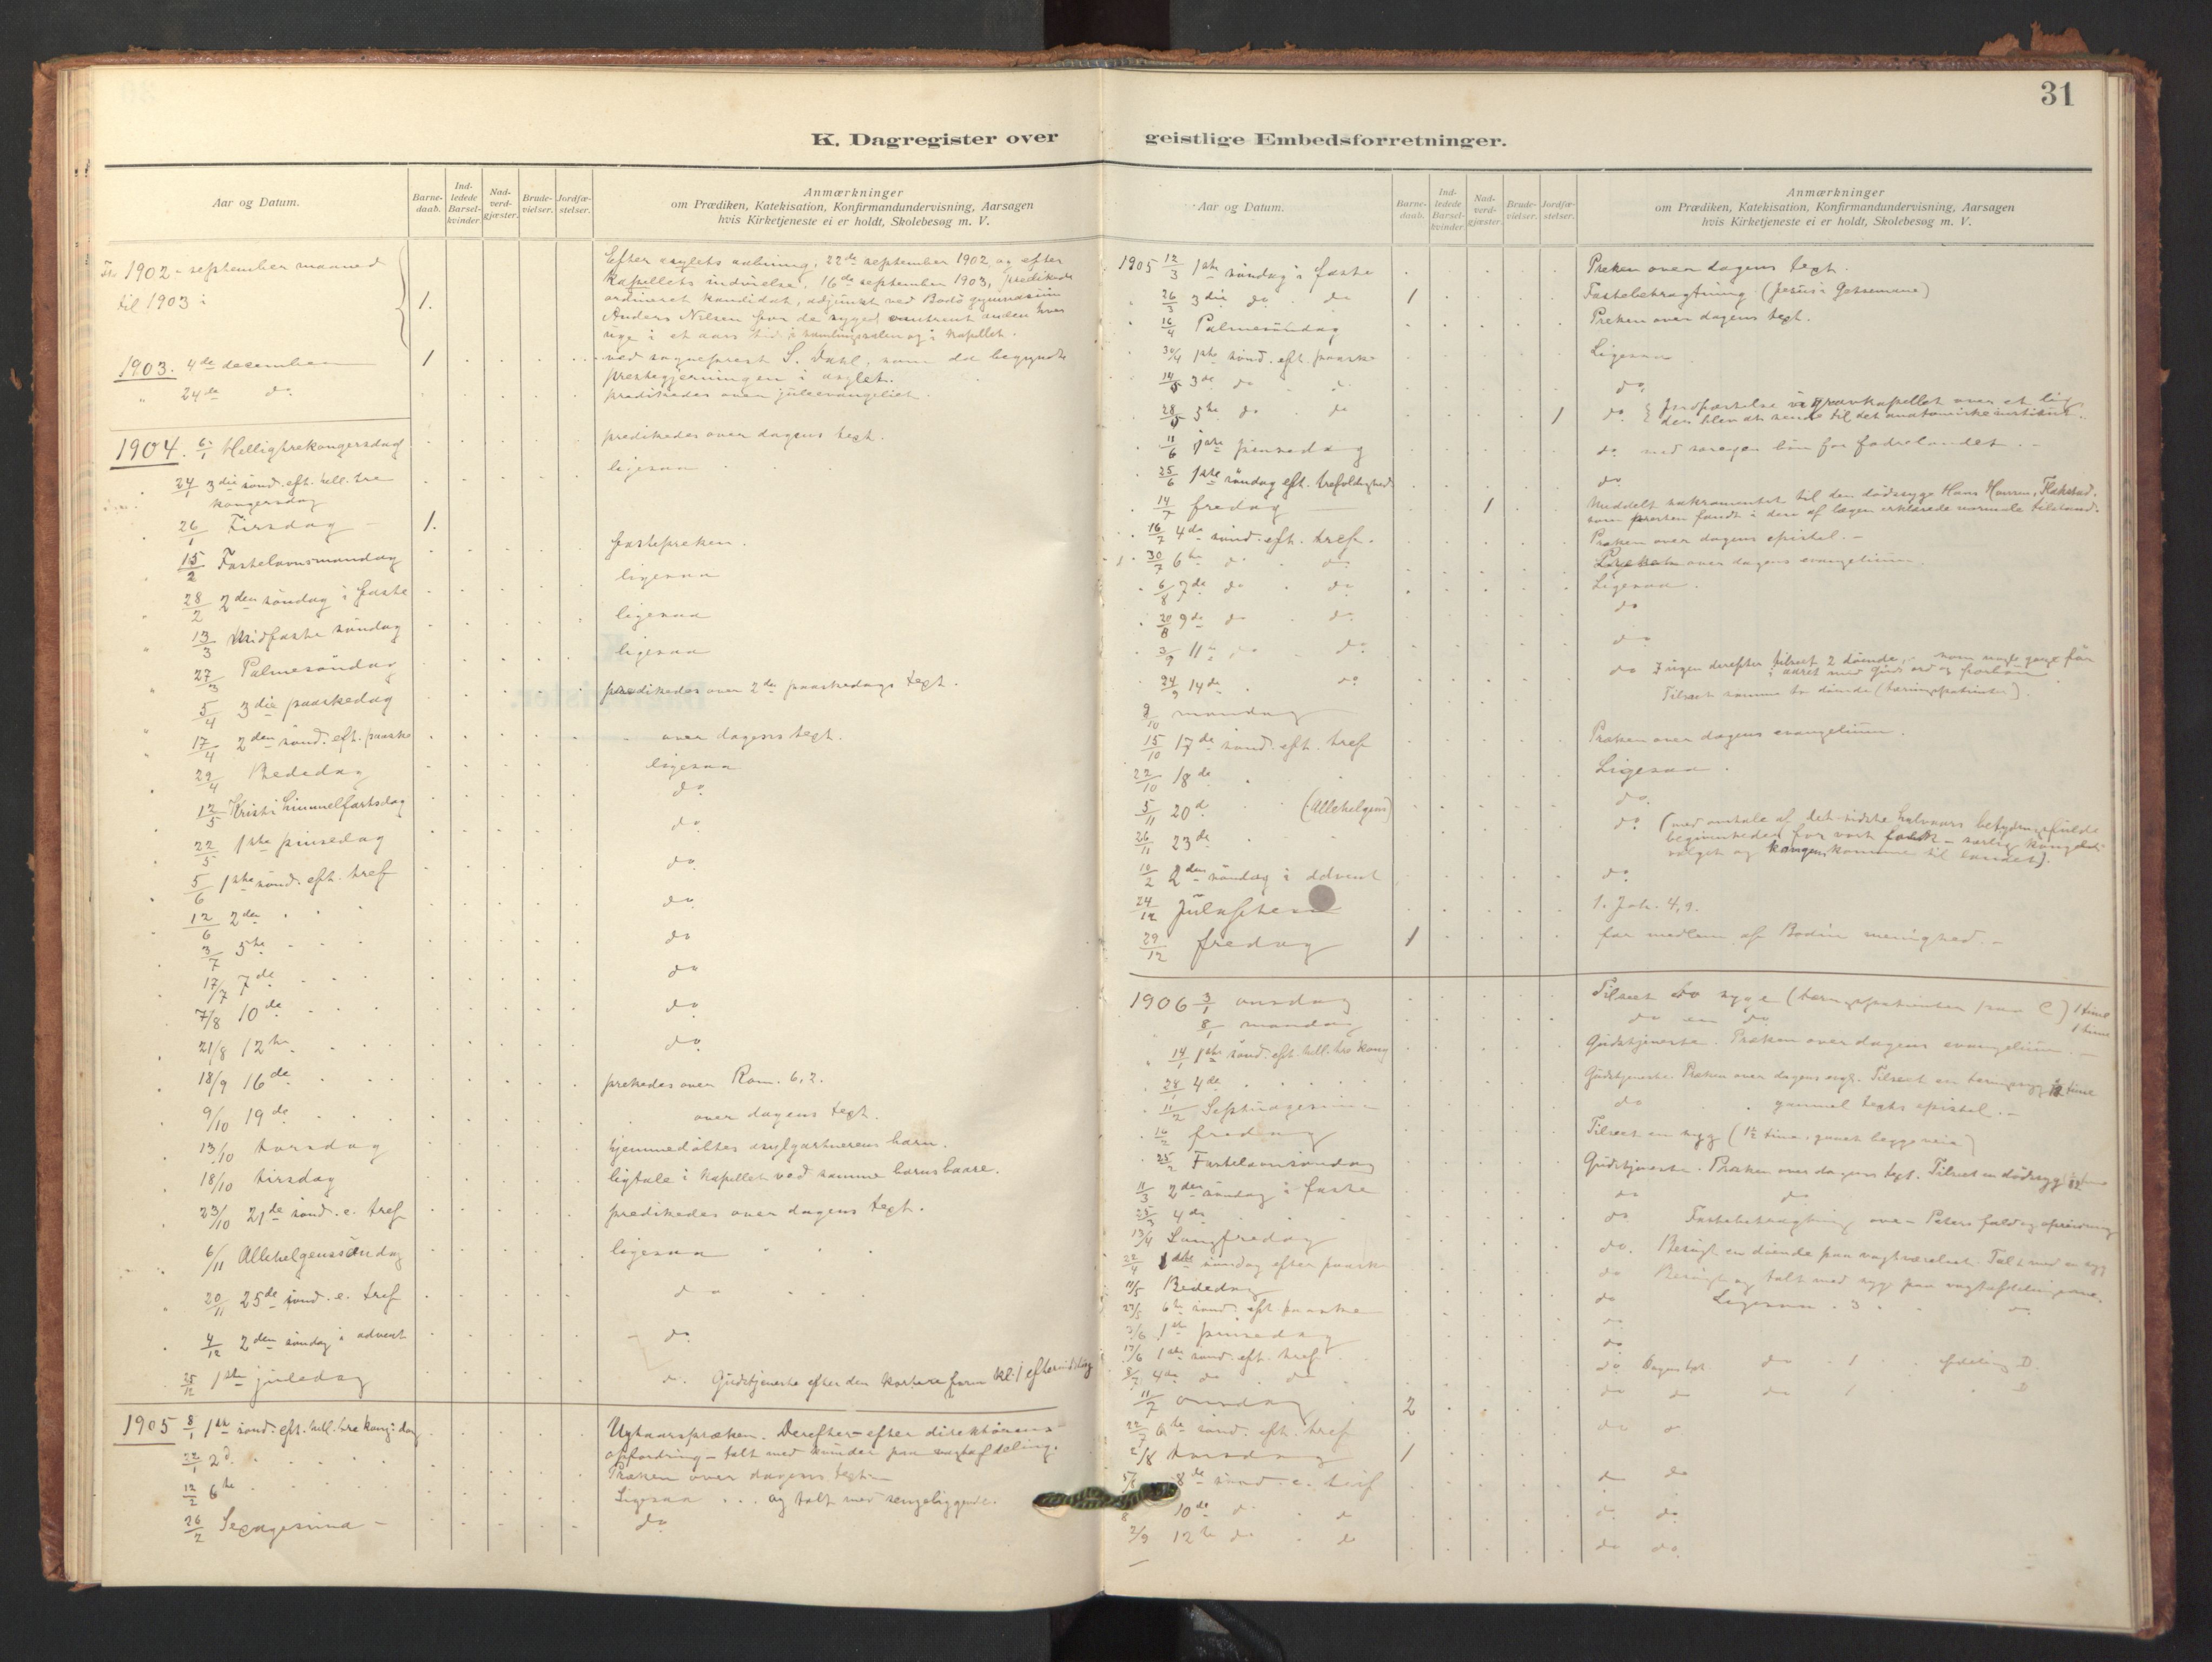 31
K. Dagregister over geistlige Embedsforretninger.
Aar og Datum.
Barne-daab.
Ind-ledede Barsel-kvinder.
Nad-verd-gjæster.
Brude-vielser.
Jordfæ-stelser.
Anmærkninger
om Prædiken, Katekisation, Konfirmandundervisning, Aarsagen
hvis Kirketjeneste ei er holdt, Skolebesøg m. V.
1902 - september maaned
til 1903 i
1.
Efter asylets aabning, 22de september 1902 og efter
kapellets indvielse, 16de september 1903, predikede
ordineret kandidat, adjunkt ved Bodö gymnasium
Anders Nilsen for de syge omtrent anden hver
uge i et aars tid i samlingssalen og i kapellet.
1903. 4de december 1 ved sogneprest S. Dahl, som da begyndte
prestegjerningen i asylet.
" 24de do. prædikedes over juleevangeliet.
1904. 6/1 Helligtrekongersdag predikedes over dagens text.
24/1 3die sönd. eft. hell. tre ligesaa
kongersdag
26/1 Tirsdag - 1.
15/2 Fastelavnsmandag fastepreken.
28/2 2den söndag i faste ligesaa
13/3 Midfaste söndag ligesaa
27/3 Palmesöndag ligesaa
5/4 3die paaskedag predikedes over 2den paaskedags text.
17/4 2den sönd. eft. paaske over dagens text.
29/4 Bededag ligesaa
12/5 Kristi himmelfartsdag do.
22/5 1ste pinsedag do.
5/6 1ste sönd. eft. tref do.
12/6 2den do.
3/7 5te do.
17/7 7de do.
7/8 10de do.
21/8 12te do.
18/9 16de prekedes over Rom. 6, 2.
9/10 19de over dagens text.
13/10 torsdag hjemmedöbtes asylgartnerens barn.
18/10 tirsdag ligtale i kapellet ved samme barns baare.
23/10 21de sönd. e. tref predikedes over dagens text.
6/11 Allehelgenssöndag ligesaa
20/11 25de sönd. e. tref do
4/12 2den söndag i advent do.
25/12 1ste juledag do. Gudstjeneste efter den kortere form kl. 1 eftermiddag
1905 8/1 1ste sönd. eft. hell. tre kong. dag Nytaarspræken. Derefter - efter direktörens
opfordring - talt med kvinder paa vagtafdeling.
22/1 2d. Præken over dagens text
12/2 6te Ligesaa . . . og talt med sengeliggende.
26/2 Sexagesima - do
Aar og Datum.
Barne-daab.
Ind-ledede Barsel-kvinder.
Nad-verd-gjæster.
Brude-vielser.
Jordfæ-stelser.
Anmærkninger
om Prædiken, Katekisation, Konfirmandundervisning, Aarsagen
hvis Kirketjeneste ei er holdt, Skolebesøg m. V.
1905 12/3 1ste söndag i faste Preken over dagens text.
26/3 3die do. do 1 Fastebetragtning (Jesus i Getsemane)
16/4 Palmesöndag Preken over dagens text.
30/4 1ste sönd. eft. paaske Ligesaa
14/5 3de do d. do.
28/5 5te do do 1 do. Jordfæstelse i gravkapellet over et lig
der blev at sende til det anatomiske institut.
11/6 1ste pinsedag do. med særegen bön for fædrelandet. -
25/6 1ste söndag eft. trefoldighed do
14/7 fredag 1 Meddelt sakramentet til den dödssyge Hans Hansen, Flakstad.
som presten fandt i den af lægen erklærede normale tilstand.
16/7 4de sönd. eft. tref. Præken over dagens epistel. -
30/7 6te do do. over dagens evangelium.
6/8 7de do do. Ligesaa.
20/8 9de do do. do
3/9 11te do do. do
24/9 14de do. do I ugen derefter tilseet 2 döende, som nogle gange för
i aaret med Guds ord og forbön
9/10 mandag Tilseet samme to döende
15/10 17de sönd. eft. tref Præken over dagens evangelium.
22/10 18de Ligesaa.
5/11 20d (Allehelgen) do.
26/11 23de do. (med omtale af det sidste halvaars betydningsfulde
begivenheder for vort folk - særlig kongevalget og kongens komme til landet).
10/2 2den söndag i advent do.
24/12 Juleaften 1. Joh. 4, 9.
29/12 fredag 1 for medlem af Bodin menighed. -
1906 3/1 onsdag Tilseet to syge 1 time
8/1 mandag do en do. 1 time
14/1 1ste sönd. eft. hell. tre kong Gudstjeneste. Præken over dagens evangelium. -
28/1 4de Gudstjeneste. Præken over dagens evgl. Tilseet en
11/2 Septuagesima do gammel texts epistel. -
16/2 fredag Tilseet en syg (1½ time, gaaet begge veie)
25/2 Fastelavnsöndag Gudstjeneste. Præken over dagens text. Tilseet en dödssyg
11/3 2den söndag i faste do do.
25/3 4de do Fastebetragtning over Peters fald og opreisning
13/4 Langfredag do. Besögt en döende paa vagtværelset. Talt med en syg
22/4 1ste söndag efter paaske do Besögt og talt med syge paa vagtafdelingerne.
11/5 Bededag do Ligesaa. 3
27/5 6te sönd. eft. paaske do.
3/6 1ste pinsedag do.
17/6 1ste sönd. eft. tref. do. Dagens text. do 1 afdeling D.
8/7 4de do do do do do 1 D
11/7 onsdag 2
22/7 6te sönd. eft. tref do
2/8 torsdag 1
8de sönd. e. tref do do
10de do do do. do.
2/9 12te do do do do.